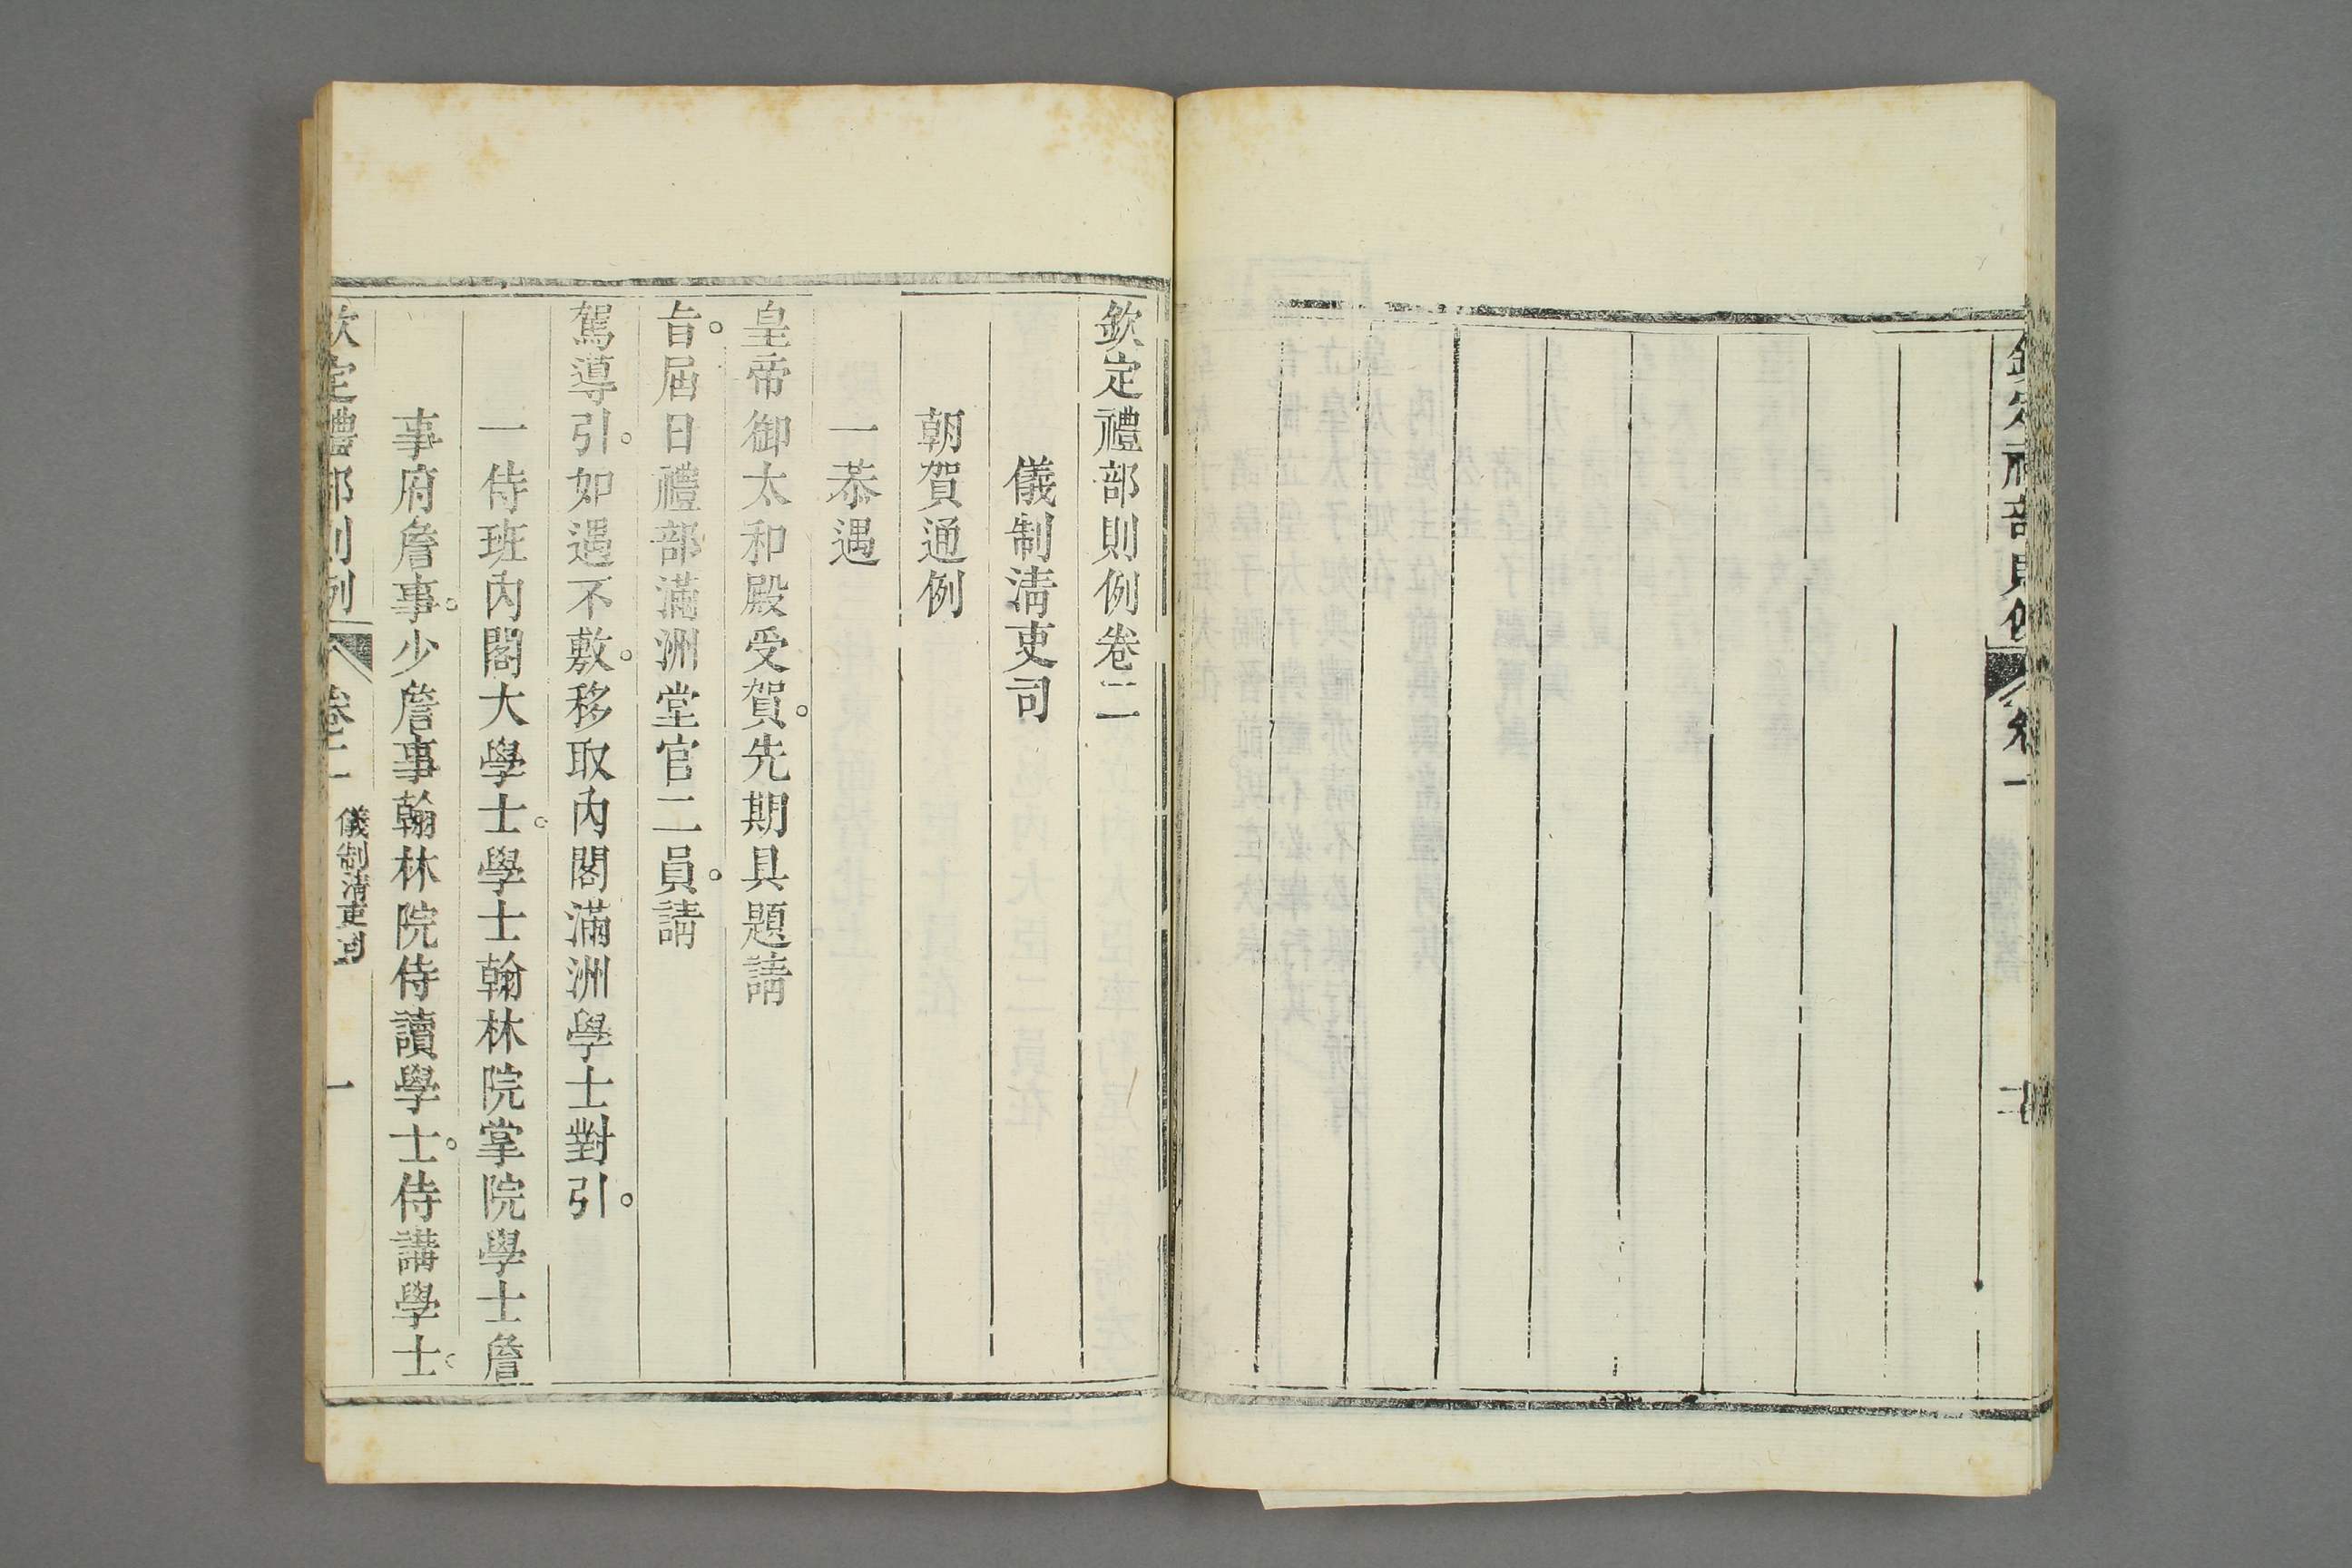 欽定禮部則例
卷一
欽定禮部則例卷二
儀制清吏司
朝賀通例
一恭遇
皇帝御太和殿受賀。先期具題請
旨。屆日禮部滿洲堂官二員。請
駕導引。如遇不敷。移取內閣滿洲學士對引。
一侍班內閣大學士。學士翰林院掌院學士詹
事府詹事。少詹事翰林院侍讀學士。侍講學士。
欽定禮部則例
卷二
儀制清吏司
一